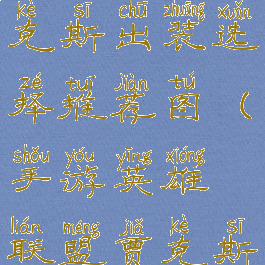 kè sī chū zhuāng xuǎn
克斯出装选
zé tuī jiàn tú
择推荐图（
shǒu yóu yīng xióng
手游英雄
lián méng jiǎ kè sī
联盟贾克斯